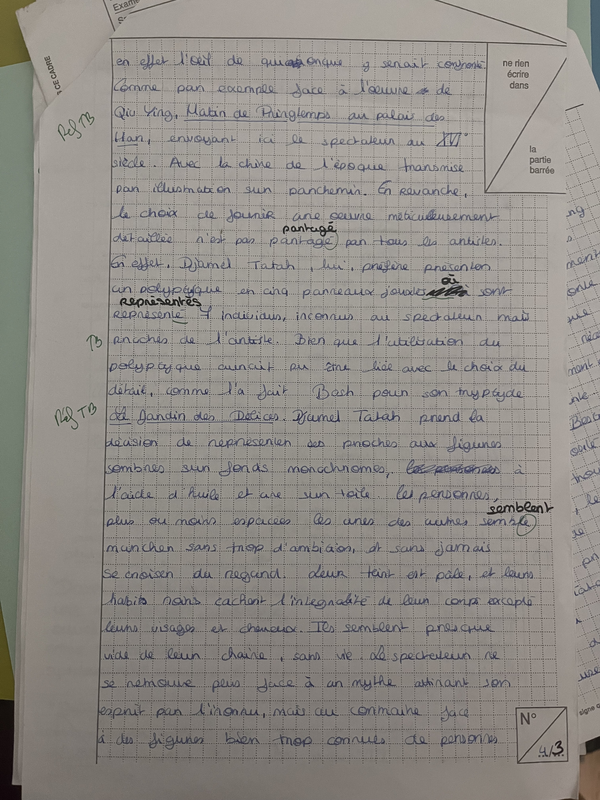 Exame
S
CE CADRE
ne rien
écrire
dans
la
partie
barrée
en effet l'œil de quiconque y serait confronté.
Comme par exemple face à l'œuvre de
Qiu Ying, Matin de Printemps au palais des
Han, envoyant ici le spectateur au XVI°
siècle. Avec la chine de l'époque transmise
par illustration sur parchemin. En revanche,
le choix de fournir une œuvre méticuleusement
partagé
détaillée n'est pas partagé par tous les artistes.
En effet, Djamel Tatah, lui, préfère présenter
où
un polyptyque en cinq panneaux sont
représentés
représenté 7 individus, inconnus au spectateur mais
proches de l'artiste. Bien que l'utilisation du
polyptyque aurait pu être liée avec le choix du
détail, comme l'a fait Bosh pour son tryptyde
Le Jardin des Délices. Djamel Tatah prend la
décision de représenter ses proches aux figures
sombres sur fonds monochromes, à
l'aide d'huile et cire sur toile. les personnes,
semblent
plus ou moins espacées les unes des autres semble
marcher sans trop d'ambition, et sans jamais
se croiser du regard. Leur teint est pâle, et leurs
habits noirs cachent l'intégralité de leur corps excepté
leurs visages et cheveux. Ils semblent presque
vide de leur chaire, sans vie. Le spectateur ne
se retrouve plus face à un mythe attirant son
esprit par l'inconnu, mais au contraire face
à des figures bien trop connues de personnes
Ref TB
TB
Ref TB
N°
4/3